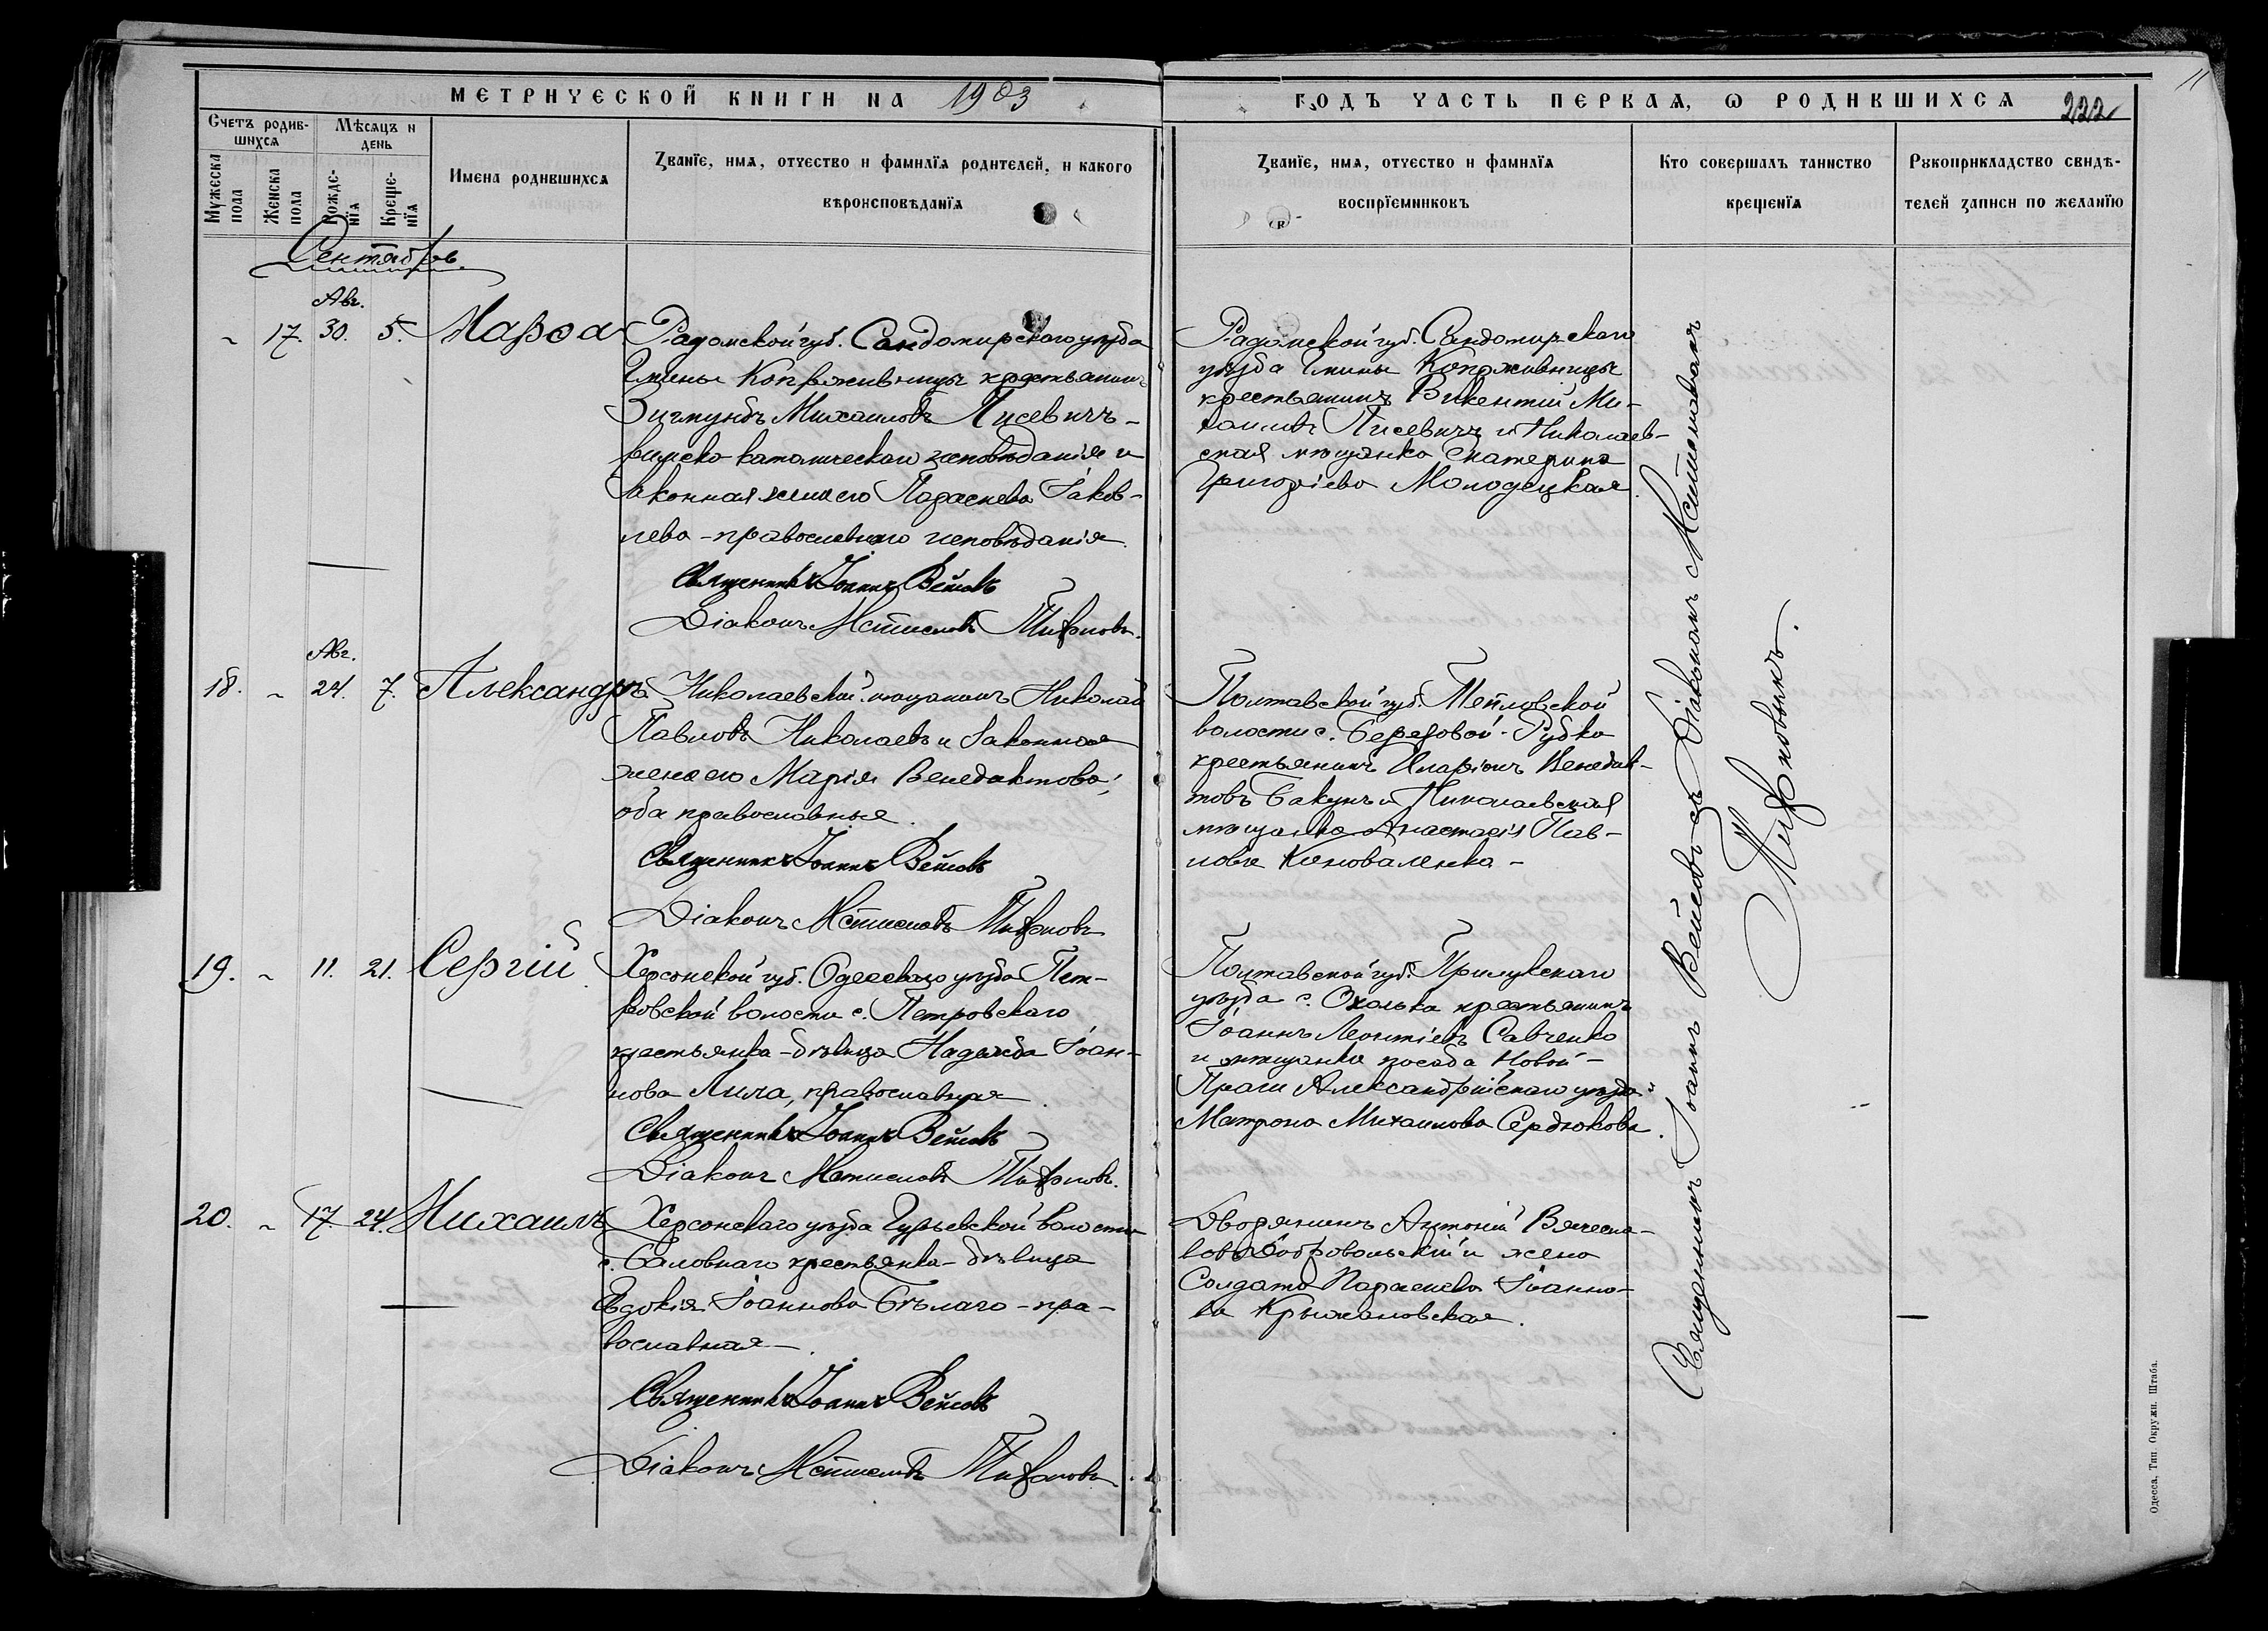 МЕТРИЧЕСКОЙ КНИГИ НА 1903
ГОДЪ ЧАСТЬ ПЕРВАЯ, Ѡ РОДИВШИХСЯ 222
11
Счетъ родив-
шихся
Мѣсяцъ и
день
Мужеска
пола
Женска
пола
Рожде-
нїя
Креще-
нїя
Имена родившихся
Званїе, имя, отчество и фамилїя родителей, и какого
вѣроисповѣданїя
Званїе, имя, отчество и фамилїя
воспрїемниковъ
Кто совершалъ таинство
крещенїя
Рукоприкладство свидѣ-
телей записи по желанїю
Сентябрь
Авг.
17. 30. 5. Марѳа
Радомской губ. Сандомирскаго уѣзда
Гмины Копрживницы крестьянинъ
Зигмундъ Михаиловъ Лисевичъ -
римско-католическаго исповѣданія и
законная жена его Параскева Іаков-
лева - православнаго исповѣданія.
Священникъ Іоаннъ Вейсовъ
Діаконъ Мстиславъ Тифоновъ.
Радомской губ. Сандомирскаго
уѣзда Гмины Копрживницы
крестьянинъ Викентій Ми-
хаиловъ Лисевичъ и Николаев-
ская мѣщанка Екатерина
Григоріева Молодецкая.
Авг.
18. 24. 7. Александръ
Николаевскій мѣщанинъ Николай
Павловъ Николаевъ и законная
жена его Марія Венедиктова,
оба православные.
Священникъ Іоаннъ Вейсовъ
Діаконъ Мстиславъ Тифоновъ
Полтавской губ.
волости с. Березовой-Рубки
крестьянинъ Иларіонъ Венедик-
товъ Бакунъ и Николаевская
мѣщанка Анастасія Пав-
лова Коноваленко -
19. 11. 21. Сергій
Херсонской губ. Одесскаго уѣзда Пет-
ровской волости с. Петровскаго
крестьянка-дѣвица Надежда Іоан-
нова Лила, православная.
Священникъ Іоаннъ Вейсовъ
Діаконъ Мстиславъ Тифоновъ.
Полтавской губ. Прилукскаго
уѣзда с. крестьянинъ
Іоаннъ Леонтіевъ Савченко
и мѣщанка посада Новой-
Праги Александрійскаго уѣзда
Матрона Михаилова Сердюкова.
20. 17. 24. Михаилъ
Херсонскаго уѣзда Гурьевской волости
с. Баловнаго крестьянка-дѣвица
Евдокія Іоаннова Бѣлаго - пра-
вославная -.
Священникъ Іоаннъ Вейсовъ
Діаконъ Мстиславъ Тифоновъ.
Дворянинъ Антоній Вячесла-
вовъ Добровольскій и жена
солдата Параскева Іоанно-
ва Крыжановская.
Священникъ Іоаннъ Вейсовъ съ Діакономъ Мстиславомъ
Тифоновымъ.
Одесса. Тип. Окружн. Штаба.